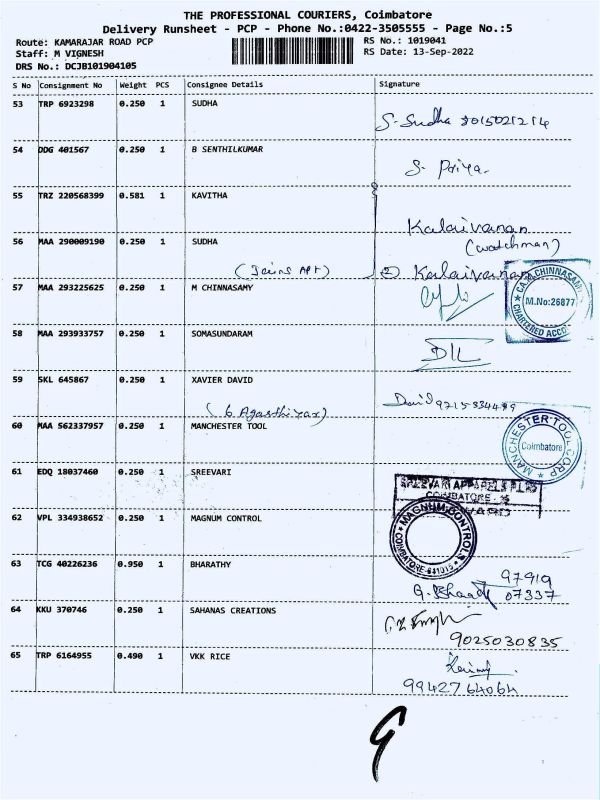 THE PROFESSIONAL COURIERS, Coimbatore
Delivery Runsheet - PCP - Phone No.:0422-3505555 - Page No.:5
Route: KAMARAJAR ROAD PCP
Staff: M VIGNESH
DRS No.: DCJB101904105
RS No.: 1019041
RS Date: 13-Sep-2022
S No Consignment No Weight PCS Consignee Details Signature
53 TRP 6923298 0.250 1 SUDHA
S. Sudha
54 DDG 401567 0.250 1 B SENTHILKUMAR
S. Priya.
55 TRZ 220568399 0.581 1 KAVITHA
Kalaivanan
(watchman)
56 MAA 290009190 0.250 1 SUDHA
(Jains Apt) Kalaivanan
57 MAA 293225625 0.250 1 M CHINNASAMY
CA. M. CHINNASAMY
M.No:26877
CHARTERED ACCO
58 MAA 293933757 0.250 1 SOMASUNDARAM
59 SKL 645867 0.250 1 XAVIER DAVID
David
(6 Agasthiyar)
60 MAA 562337957 0.250 1 MANCHESTER TOOL
MANCHESTER TOOL CORP
Coimbatore
61 EDQ 18037460 0.250 1 SREEVARI
SREEVARI APPARELS
COIMBATORE
62 VPL 334938652 0.250 1 MAGNUM CONTROL
MAGNUM CONTROLS
COIMBATORE-641015
63 TCG 40226236 0.950 1 BHARATHY
97919
07337
64 KKU 370746 0.250 1 SAHANAS CREATIONS
9025030835
65 TRP 6164955 0.490 1 VKK RICE
9942764064
9